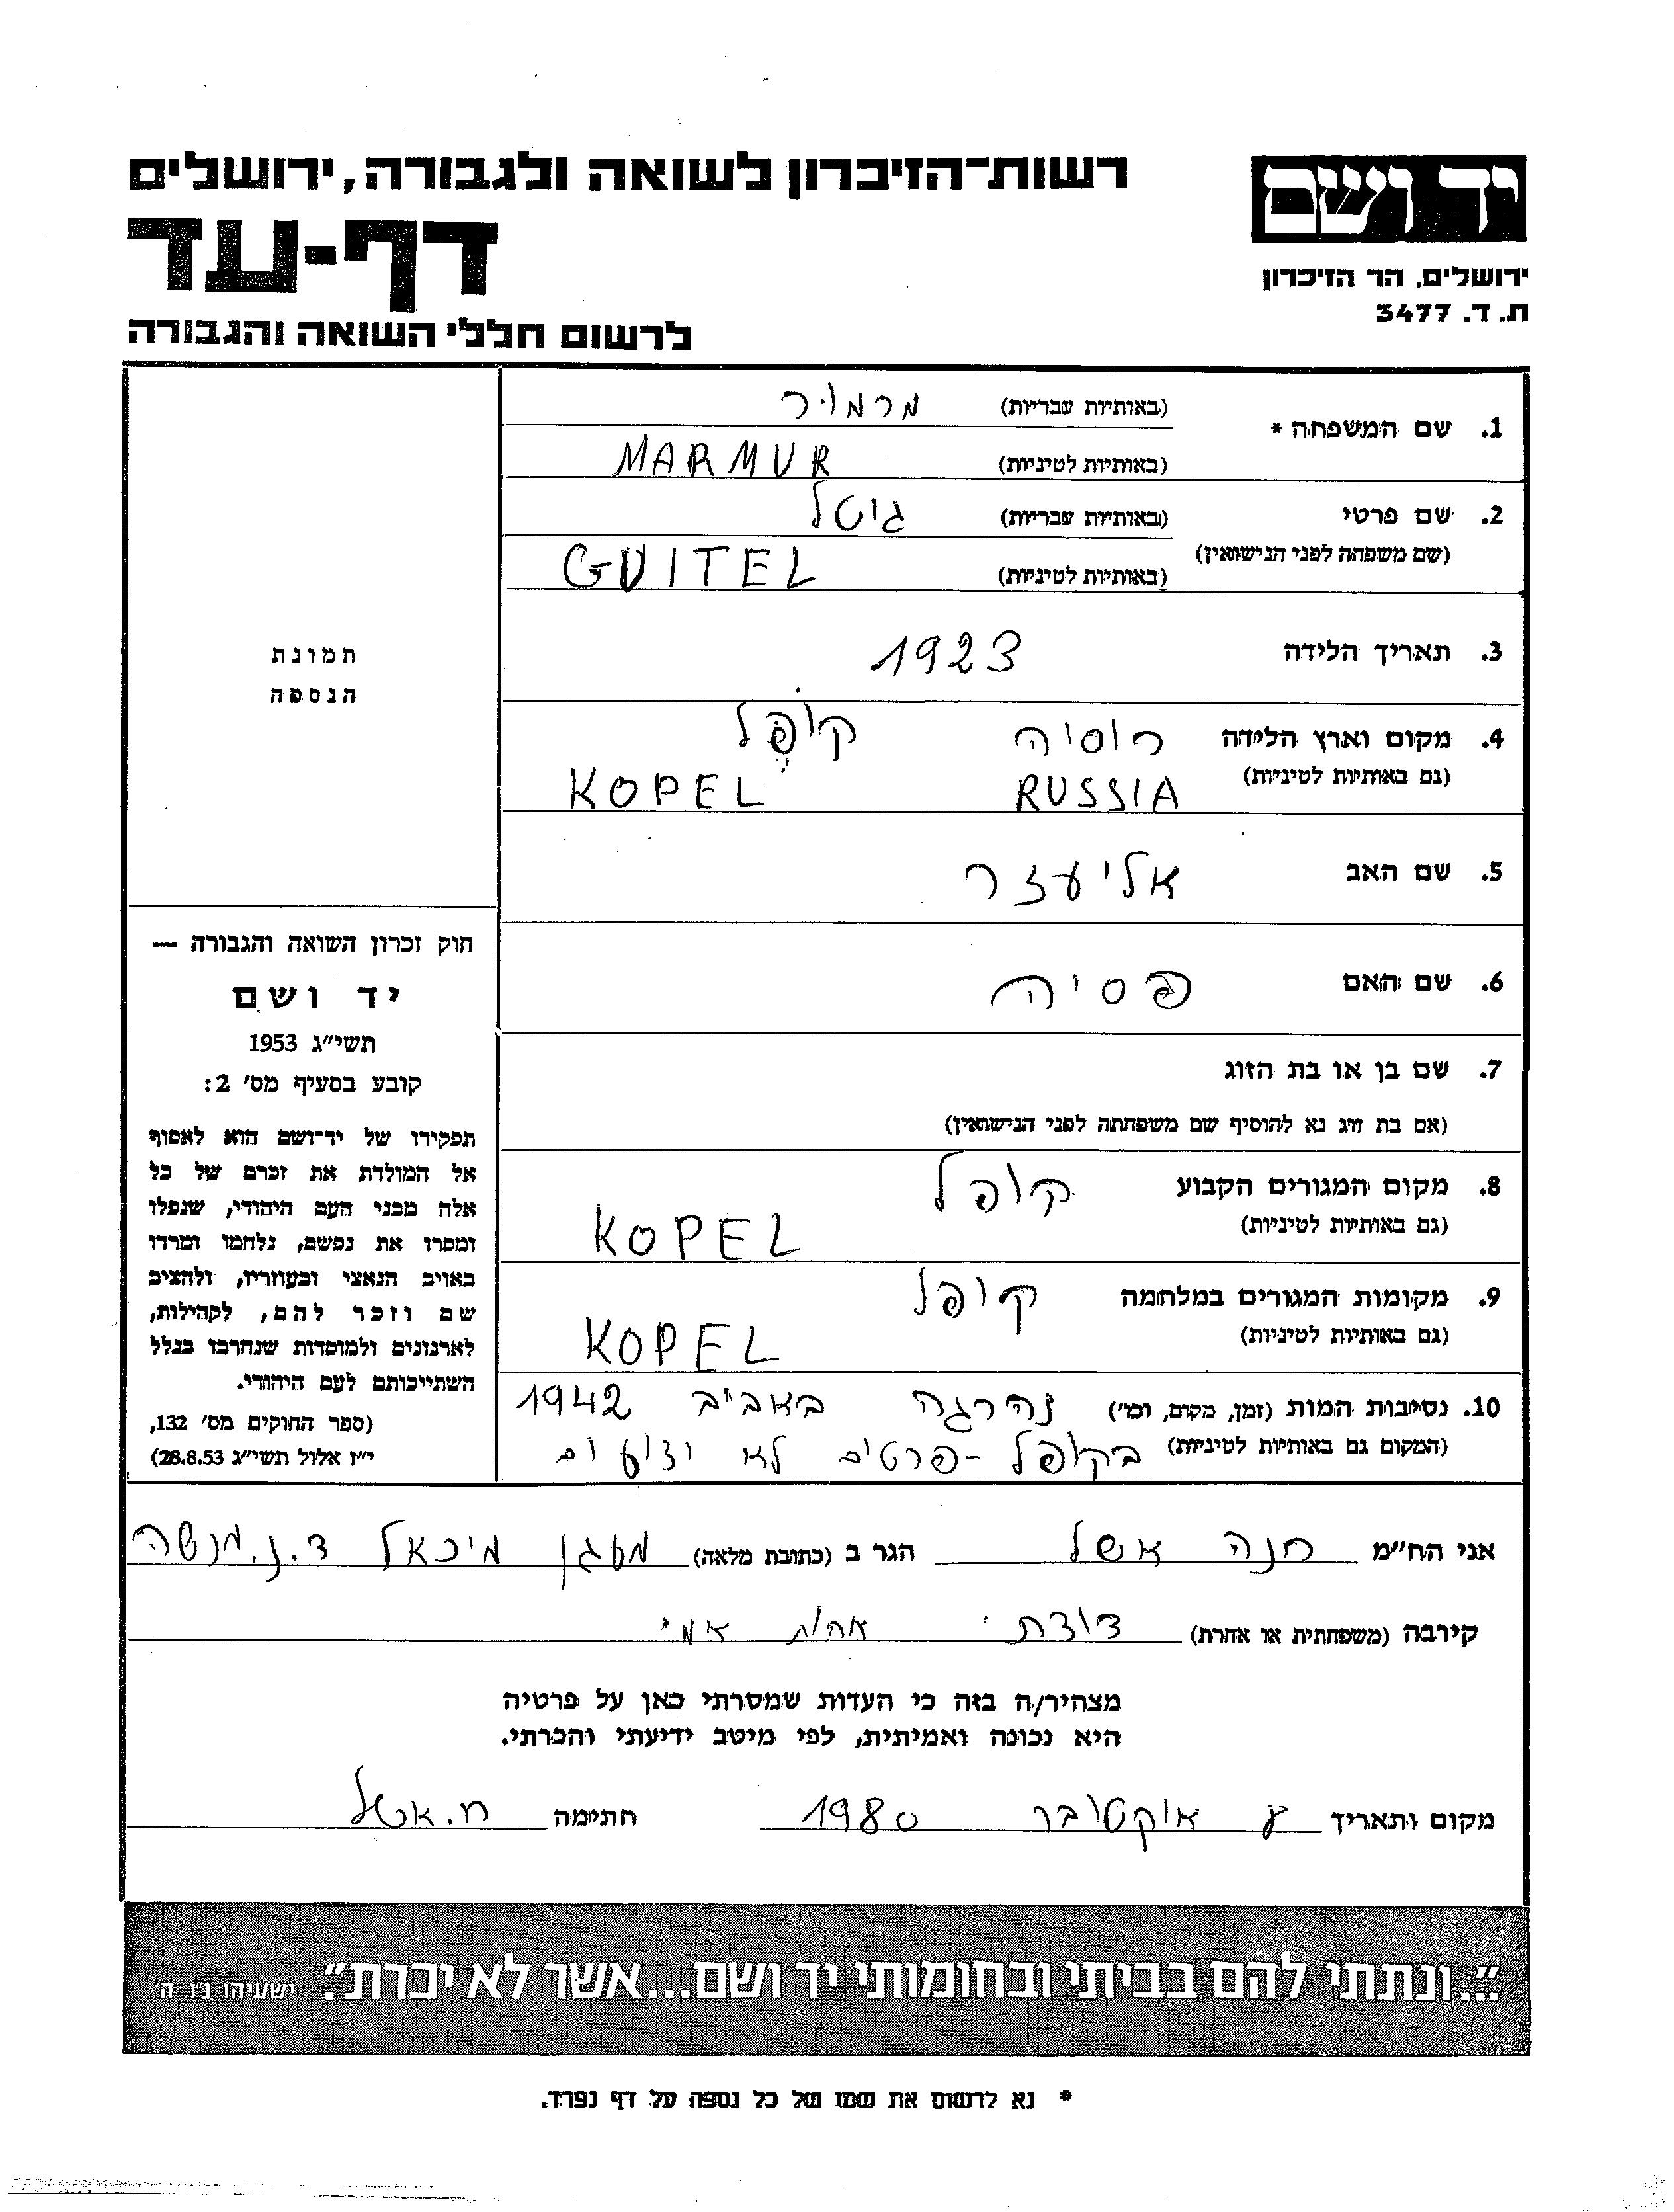 יד ושם
ירושלים, הר הזיכרון
ת. ד. 3477
רשות־הזיכרון לשואה ולגבורה, ירושלים
דף-עד
לרשום חללי השואה והגבורה
1. שם המשפחה * (באותיות עבריות) מרמור
(באותיות לטיניות) MARMUR
2. שם פרטי (באותיות עבריות) גיטל
(שם משפחה לפני הנישואין) (באותיות לטיניות) GUITEL
3. תאריך הלידה 1923
4. מקום וארץ הלידה רוסיה קופל
(גם באותיות לטיניות) RUSSIA KOPEL
5. שם האב אליעזר
6. שם האם פסיה
7. שם בן או בת הזוג
(אם בת זוג נא להוסיף שם משפחתה לפני הנישואין)
8. מקום המגורים הקבוע קופל
(גם באותיות לטיניות) KOPEL
9. מקומות המגורים במלחמה קופל
(גם באותיות לטיניות) KOPEL
10. נסיבות המות (זמן, מקום, וכו') נהרגה באביב 1942
(המקום גם באותיות לטיניות) בקופל - פרטים לא ידועים
תמונת
הנספה
חוק זכרון השואה והגבורה —
יד ושם
תשי״ג 1953
קובע בסעיף מס' 2:
תפקידו של יד־ושם הוא לאסוף
אל המולדת את זכרם של כל
אלה מבני העם היהודי, שנפלו
ומסרו את נפשם, נלחמו ומרדו
באויב הנאצי ובעוזריו, ולהציב
שם וזכר להם, לקהילות,
לארגונים ולמוסדות שנחרבו בגלל
השתייכותם לעם היהודי.
(ספר החוקים מס' 132,
י״ז אלול תשי״ג 28.8.53)
אני הח״מ חנה אשל הגר ב (כתובת מלאה) מעגן מיכאל ד.נ. מנשה
קירבה (משפחתית או אחרת) דודתי אחות אמי
מצהיר/ה בזה כי העדות שמסרתי כאן על פרטיה
היא נכונה ואמיתית, לפי מיטב ידיעתי והכרתי.
מקום ותאריך אוקטובר 1980 חתימה ח. אשל
״...ונתתי להם בביתי ובחומותי יד ושם...אשר לא יכרת״. ישעיהו נ״ו ה'
* נא לרשום את שמו של כל נספה על דף נפרד.